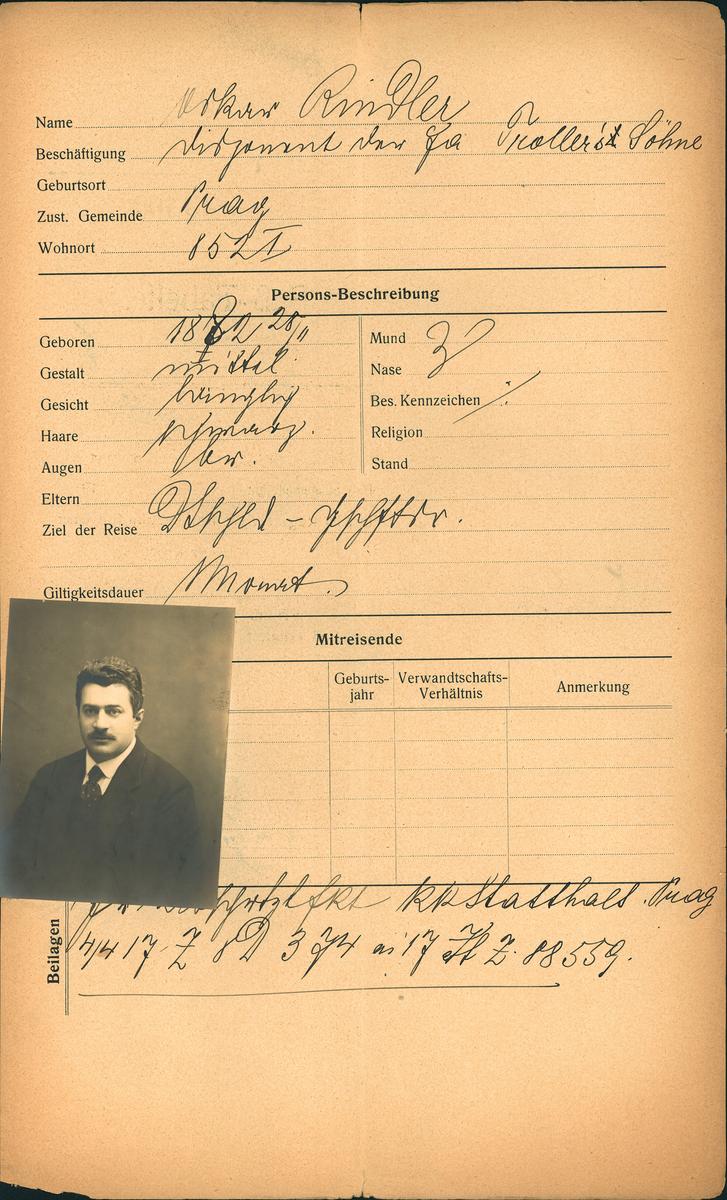 Name Oskar Rindler
Beschäftigung Disponent der Fa Troller's Söhne
Geburtsort
Zust. Gemeinde Prag
Wohnort 852 I
Persons-Beschreibung
Geboren 1882 28/11
Gestalt mittel
Gesicht länglich
Haare schwarz.
Augen br.
Mund
Nase
Bes. Kennzeichen ./.
Religion
Stand
Eltern
Ziel der Reise Dtschld -
Giltigkeitsdauer Monat
Mitreisende
Geburts-jahr
Verwandtschafts-Verhältnis
Anmerkung
Beilagen
kk Statthalt. Prag
4/4 17 Z 8D 374 ai 17 Z. 88559.